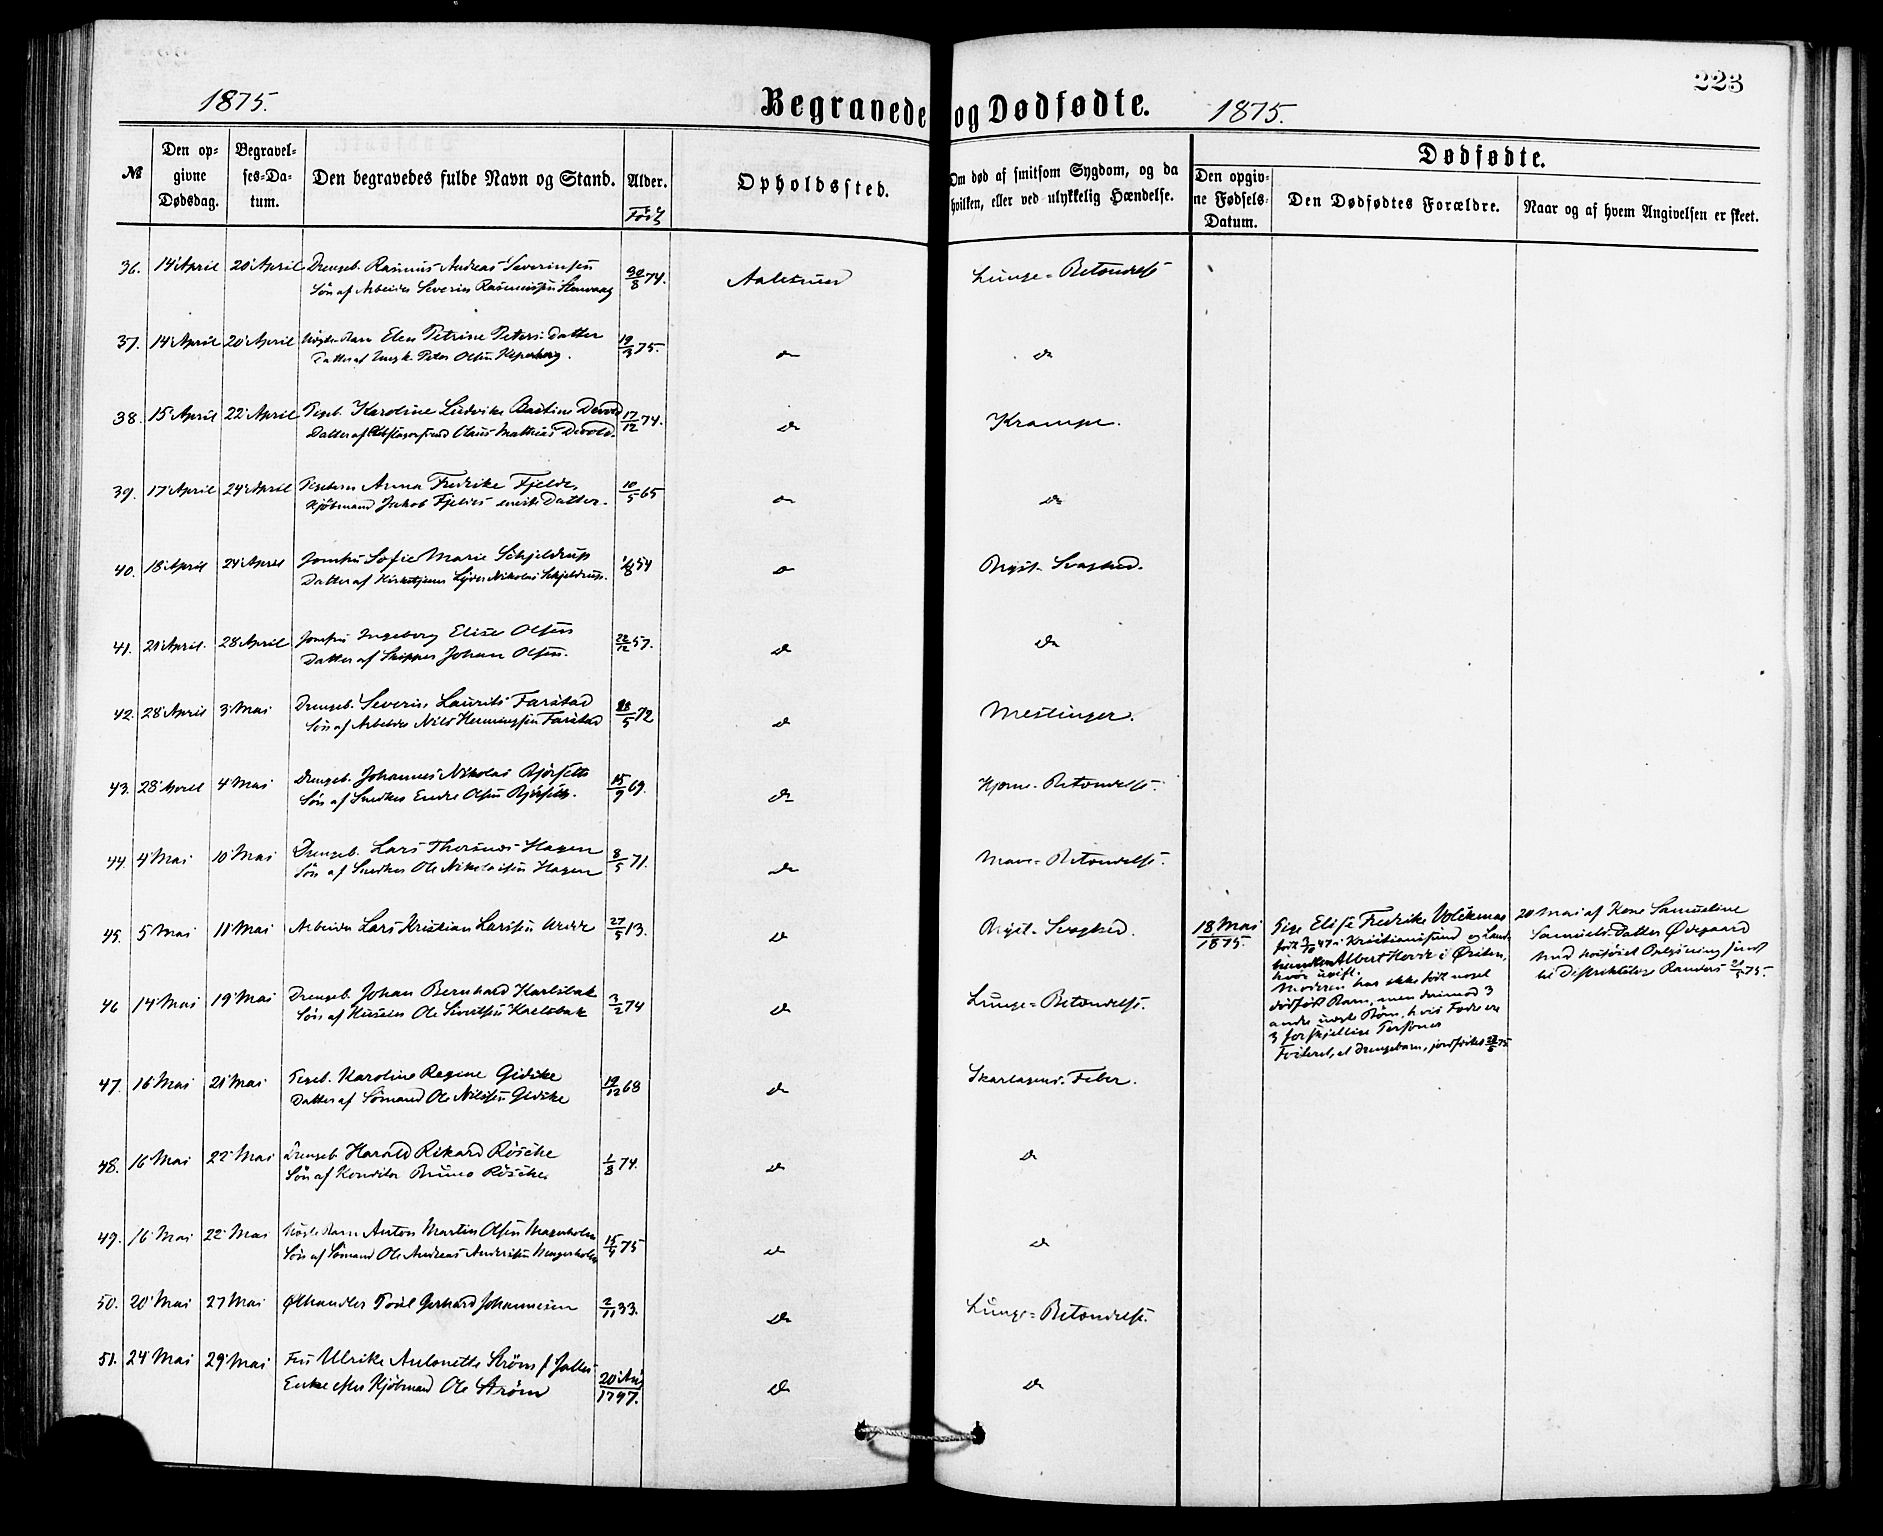 223
1875.
Begravede og Dødfødte.
1875.
No
Den opgivne Dødsdag.
Begravelses-Datum.
Den begravedes fulde Navn og Stand.
Alder.
Født
Opholdssted.
Om død af smitsom Sygdom, og da hvilken, eller ved ulykkelig Hændelse.
Dødfødte.
Den opgivne Fødsels-Datum.
Den Dødfødtes Forældre.
Naar og af hvem Angivelsen er skeet.
36. 14 April 20 April Drengeb. Rasmus Andreas Severinsen 30/8 74. Aalesund Lunge-Betændelse
Søn af Arbeider Severin Rasmussen
37. 14 April 20 April Barn Elen Petrine Peters-Datter 19/3 75. do do
Datter af Ungk. Peter Olsen
38. 15 April 22 April Pigeb. Karoline Ludvike Bastine Devold 17/12 74. do Krampe.
Datter af Claus Mathias Devold.
39. 17 April 24 April Pigebarn Anna Fredrike Fjelde, 10/5 65 do do
Kjøbmand Jakob Fjeldes eneste Datter.
40. 18 April 24 April Jomfru Sofie Marie Schjeldrup 1/8 54 do Bryst-Svaghed.
Datter af Kirketjener Nikolai Schjeldrup.
41. 21 April. 28 April Jomfru Ingeborg Elise Olsen 22/12 57. do do
Datter af Skipper Johan Olsen.
42. 28 April 3 Mai Drengeb. Severin Laurits Farstad 28/5 72 do Meslinger.
Søn af Arbeider Nils Henningsen Farstad
43. 28 April 4 Mai Drengeb. Johannes Nikolai 15/9 69. do Hjerne-Betændelse.
Søn af Snedker Endre Olsen
44. 4 Mai 10 Mai Drengeb. Lars Hagen 8/5 71. do Mave-Betændelse.
Søn af Snedker Ole Nikolaisen Hagen
45. 5 Mai 11 Mai Arbeider Lars Kristian Larssen 27/5 13. do Bryst-Svaghed.
46 14 Mai 19 Mai Drengeb. Johan Bernhard Karlsbak 3/2 74 do Lunge-Betændelse.
Søn af Ole Karlsbak
47. 16 Mai 21 Mai Pigeb. Karoline Regine Gidske 19/12 68 do Skarlagens-Feber.
Datter af Sømand Ole Nilssen Gidske
48. 16 Mai 22 Mai Drengeb. Harald Rikard Rösche 1/8 74. do do
Søn af Konditor Bruno Rösche
49. 16 Mai 22 Mai Barn Anton Martin Olsen do do
Søn af Sømand Ole Andreas Anderssen
50. 20 Mai 27 Mai Ølhandler Poul Gerhard Johannesen 2/11 33. do Lunge-Betændelse.
51. 24 Mai 29 Mai Fru Ulrike Antonette Strøm f. 20 Aug 1797. do do
Enke efter Kjøbmand Ole Strøm
18 Mai 1875.
Pige Elise Fredrike
født i Kristianssund og
Albert i Ørsten,
hvor ugift.
Moderen har ikke født noget
dødfødt Barn, men derimod 3
andre uægte Børn, hvis Fædre ere
3 forskjellige Personer
Fosteret, et Drengebarn, jordfæstet
20 Mai af Kone Samueline
Samuels-Datter Ødegaard
med Oplysning sendt
til Distriktslæge Randers 21/5 75.